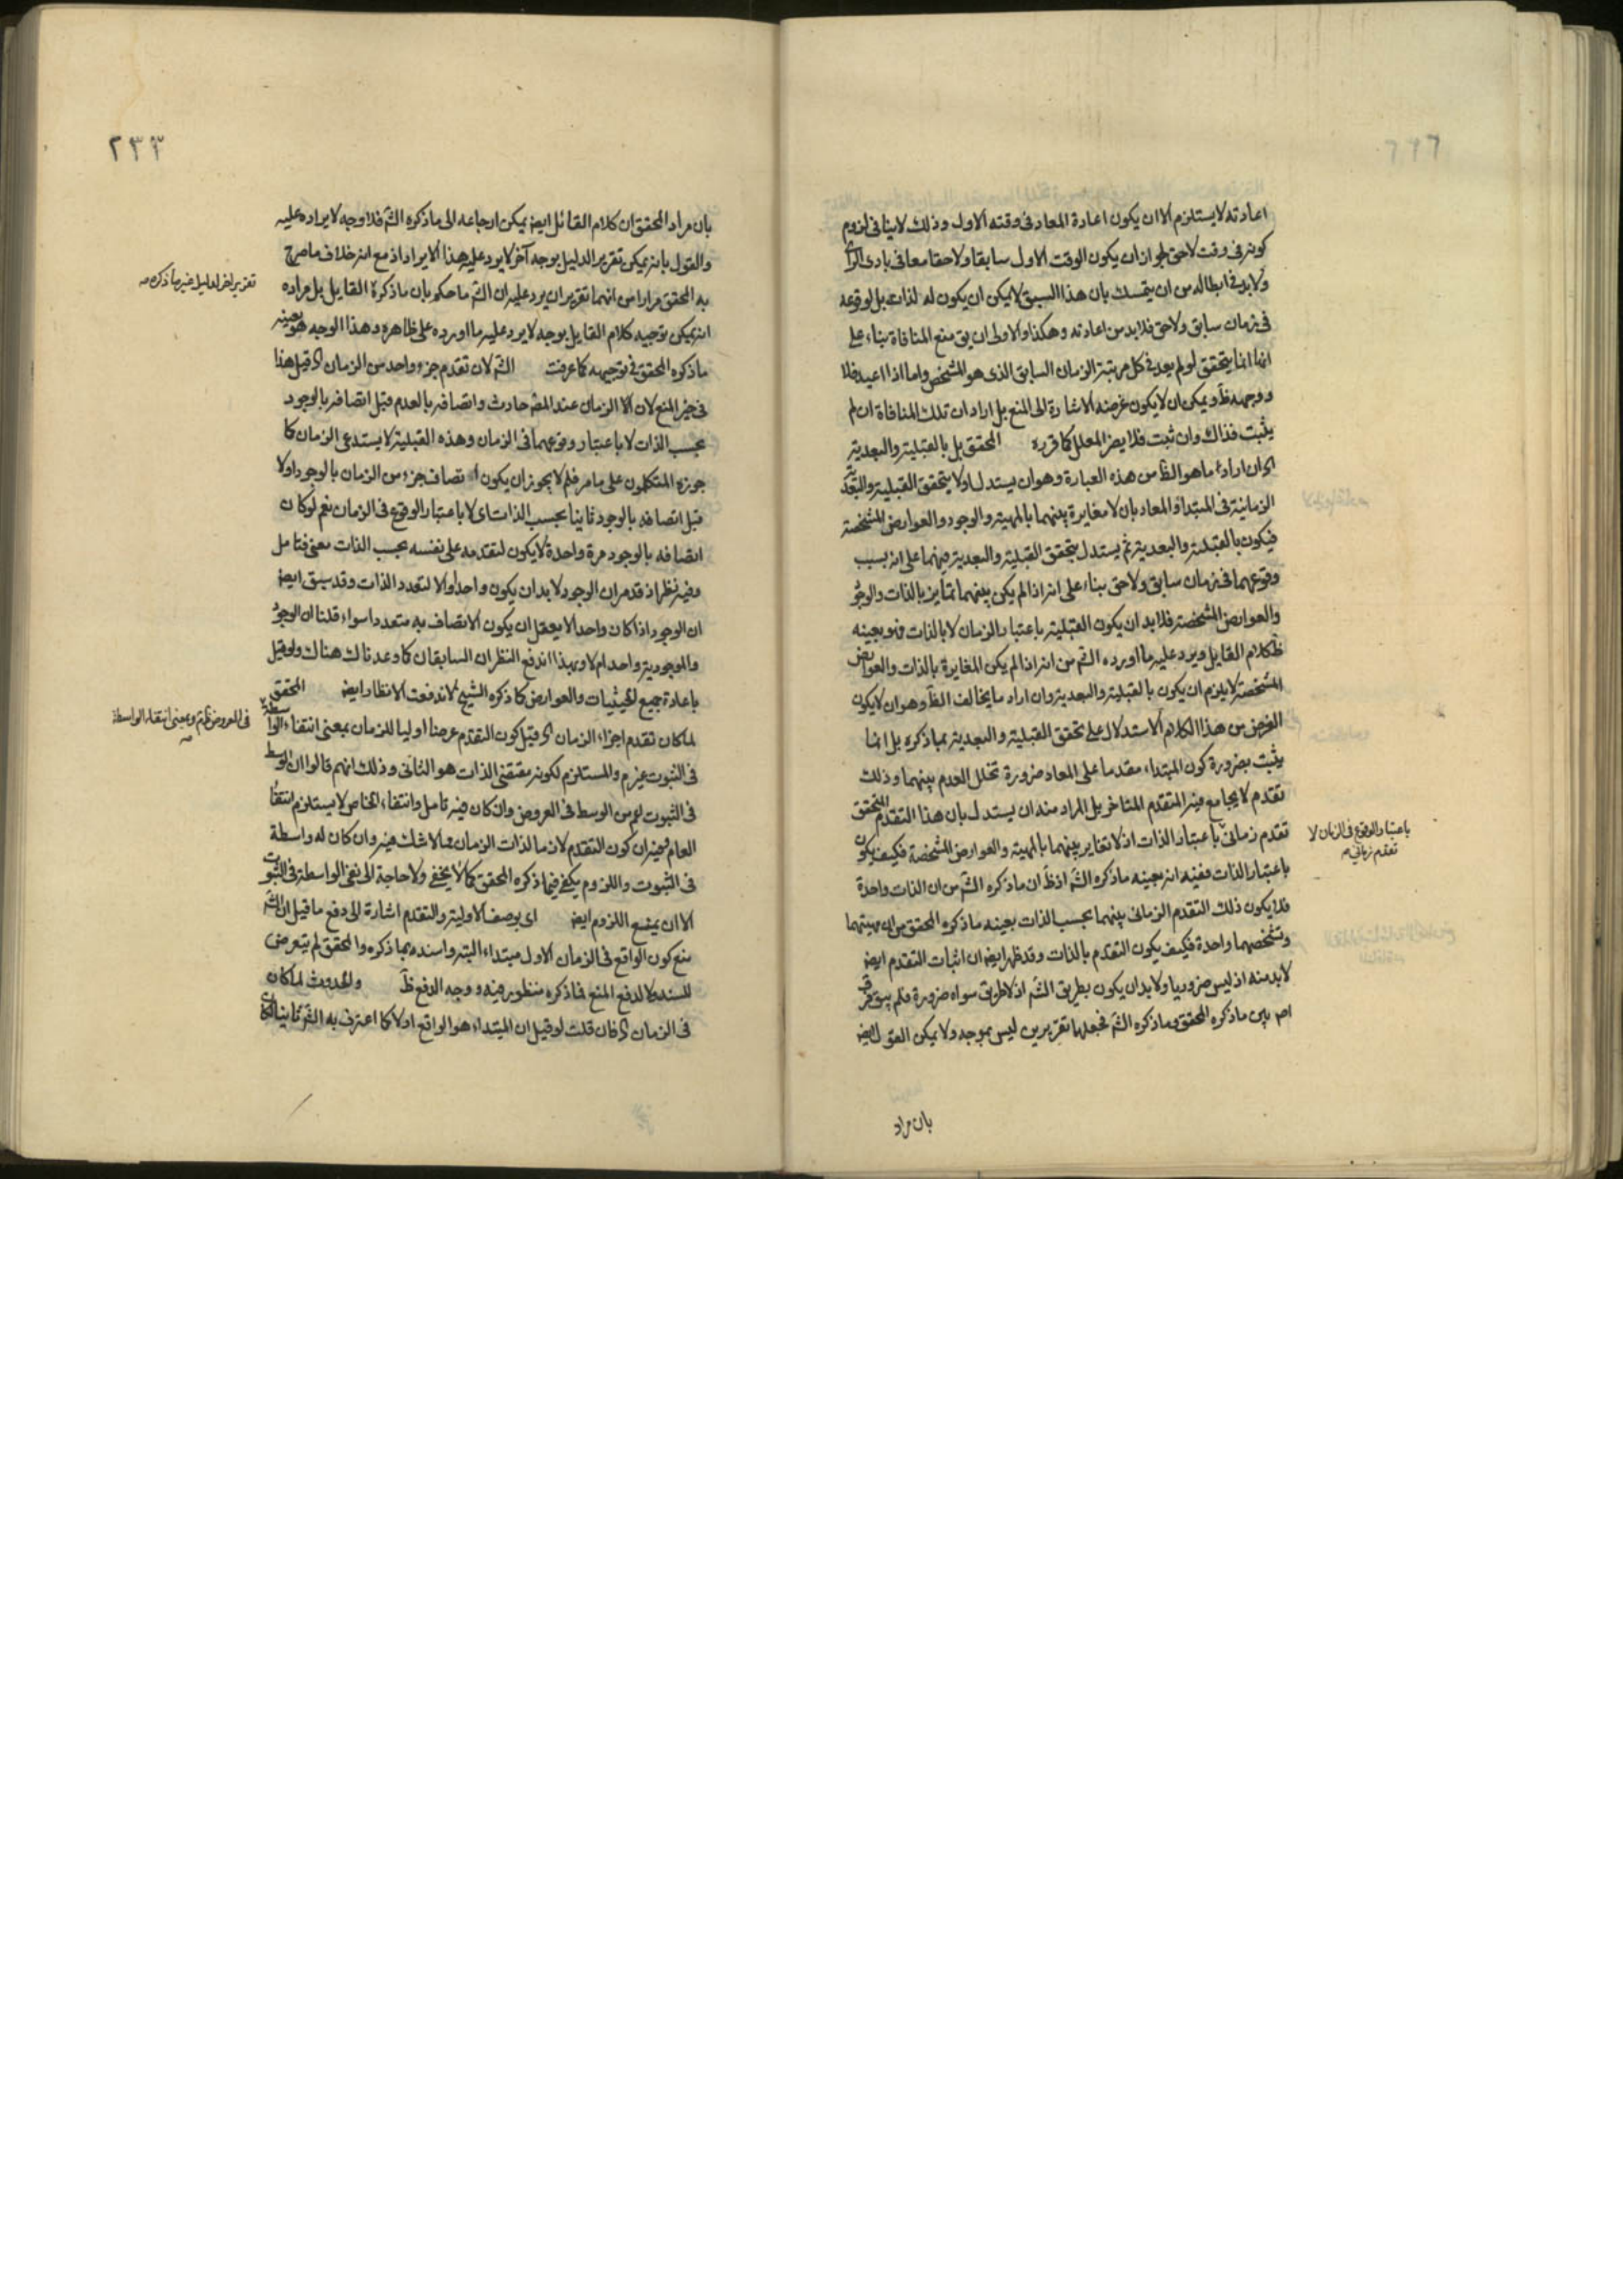 اعادته لا يستلزم الا ان يكون اعادة المعاد فى وقته الاول وذلك لا ينافى لزوم
كونه فى وقت لاحق لجواز ان يكون الوقت الاول سابقا ولاحقا معا فى بادى الراى
ولا بد فى ابطاله من ان يتمسك بان هذا السبق لا يمكن ان يكون له لذاته بل لوقوعه
فى زمان سابق ولاحق فلا بد من اعادته وهكذا والاولى ان يق منع المنافاة بناء على
انها انما يتحقق لو لم يعد فى كل مرتبة الزمان السابق الذى هو المشخص واما اذا اعيد فلا
ووجهه ظ ويمكن ان لا يكون غرضه الاشارة الى المنع بل اراد ان تلك المنافاة ان لم
يثبت فذاك وان ثبت فلا يضر المعلل كما قرره المحقق بل بالقبلية والبعدية
اى ان اراد ما هو الظ من هذه العبارة وهو ان يستدل اولا بتحقق القبلية والبعدية
الزمانية فى المبتداء والمعاد بان لا مغايرة بينهما بالمهية والوجود والعوارض المشخصة
فيكون بالقبلية والبعدية ثم يستدل بتحقق القبلية والبعدية فيهما على انه بسبب
وقوعهما فى زمان سابق ولاحق بناء على انه اذا لم يكن بينهما تمايز بالذات والوجود
والعوارض المشخصة فلا بد ان يكون القبلية باعتبار الزمان لا بالذات فهو بعينه
ظ كلام القايل ويرد عليه ما اورده الشم من انه اذا لم يكن المغايرة بالذات والعوارض
المشخصة لا يلزم ان يكون بالقبلية والبعدية وان اراد ما يخالف الظ وهو ان لا يكون
الغرض من هذا الكلام الاستدلال على تحقق القبلية والبعدية بما ذكره بل انما
يثبت بضرورة كون المبتداء مقدما على المعاد ضرورة تخلل العدم بينهما وذلك
تقدم لا يجامع فيه المتقدم المتاخر بل المراد منه ان يستدل بان هذا التقدم المتحقق
تقدم زمانى باعتبار الذات اذ لا تغاير بينهما بالمهية والعوارض المشخصة فكيف يكون
باعتبار الوقوع فى الزمان لا
تقدم زمانى
باعتبار الذات ففيه انه بعينه ما ذكره الشم اذ ظ ان ما ذكره الشم من ان الذات واحدة
فلا يكون ذلك التقدم الزمانى بينهما بحسب الذات بعينه ما ذكره المحقق من ان مهيتهما
وتشخصهما واحدة فكيف يكون التقدم بالذات وقد ظهر ايضا ان اثبات التقدم ايضا
لا بد منه اذ ليس ضروريا ولا بد ان يكون بطريق الشم اذ لا طريق سواه ضرورة فلم يبق فرق
اصلا بين ما ذكره المحقق وما ذكره الشم فجعلهما تقريرين ليس بموجه ولا يمكن القول ايضا
بان مراد
٢٣٣
بان مراد المحقق ان كلام القائل ايضا يمكن ارجاعه الى ما ذكره الشم فلا وجه لايراده عليه
والقول بانه يمكن تقرير الدليل بوجه آخر لا يرد عليه هذا الايراد اذ مع انه خلاف ما صرح
تقرير اخر لدليل غير ما ذكره
به المحقق مرارا من انهما تقريران يرد عليه ان الشم ما حكم بان ما ذكره القايل بل مراده
انه يمكن توجيه كلام القايل بوجه لا يرد عليه ما اورده على ظاهره وهذا الوجه هو بعينه
ما ذكره المحقق فى توجيهه كما عرفت الشم لان تقدم جزء واحد من الزمان اى قيل هذا
فى حيز المنع لان الزمان عند المصنف حادث واتصافه بالعدم قبل اتصافه بالوجود
بحسب الذات لا باعتبار وقوعهما فى الزمان وهذه القبلية لا يستدعى الزمان كما
جوزه المتكلمون على ما مر فلم لا يجوز ان يكون اتصاف جزء من الزمان بالوجود اولا
قبل اتصافه بالوجود ثانيا بحسب الذات اى لا باعتبار الوقوع فى الزمان نعم لو كان
اتصافه بالوجود مرة واحدة لا يكون لتقدمه على نفسه بحسب الذات معنى فتامل
وفيه نظر اذ قد مر ان الوجود لا بد ان يكون واحدا والا لتعدد الذات وقد سبق ايضا
ان الوجود اذا كان واحد الا يعقل ان يكون الاتصاف به متعددا سواء قلنا ان الوجود
والموجودية واحد ام لا وبهذا اندفع النظران السابقان كما وعدناك هناك ولو قيل
باعادة جميع الحيثيات والعوارض كما ذكره الشيخ لاندفعت الانظار ايضا المحقق
لما كان تقدم اجزاء الزمان اى قيل كون التقدم عرضا اوليا للزمان بمعنى انتفاء الواسطة
فى العروض لازم وبمعنى انتفاء الواسطة
فى الثبوت غير م والمستلزم لكونه مقتضى الذات هو الثانى وذلك انهم قالوا ان الوسط
فى الثبوت اعم من الوسط فى العروض وان كان فيه تامل وانتفاء الخاص لا يستلزم انتفاء
العام وفيه ان كون التقدم لازما لذات الزمان مما لا شك فيه وان كان له واسطة
فى الثبوت واللزوم يكفى فيما ذكره المحقق كما لا يخفى ولا حاجة الى نفى الواسطة فى الثبوت
الا ان يمنع اللزوم ايضا اى بوصف الاولية والتقدم اشارة الى دفع ما قيل ان الشم
منع كون الواقع فى الزمان الاول مبتداء البتة واسنده بما ذكره والمحقق لم يتعرض
للسند لا لدفع المنع فما ذكره منظور فيه ووجه الدفع ظ والحدوث لما كان
فى الزمان اى فان قلت لو قيل ان المبتداء هو الواقع اولا كما اعترف به الشم ثانيا